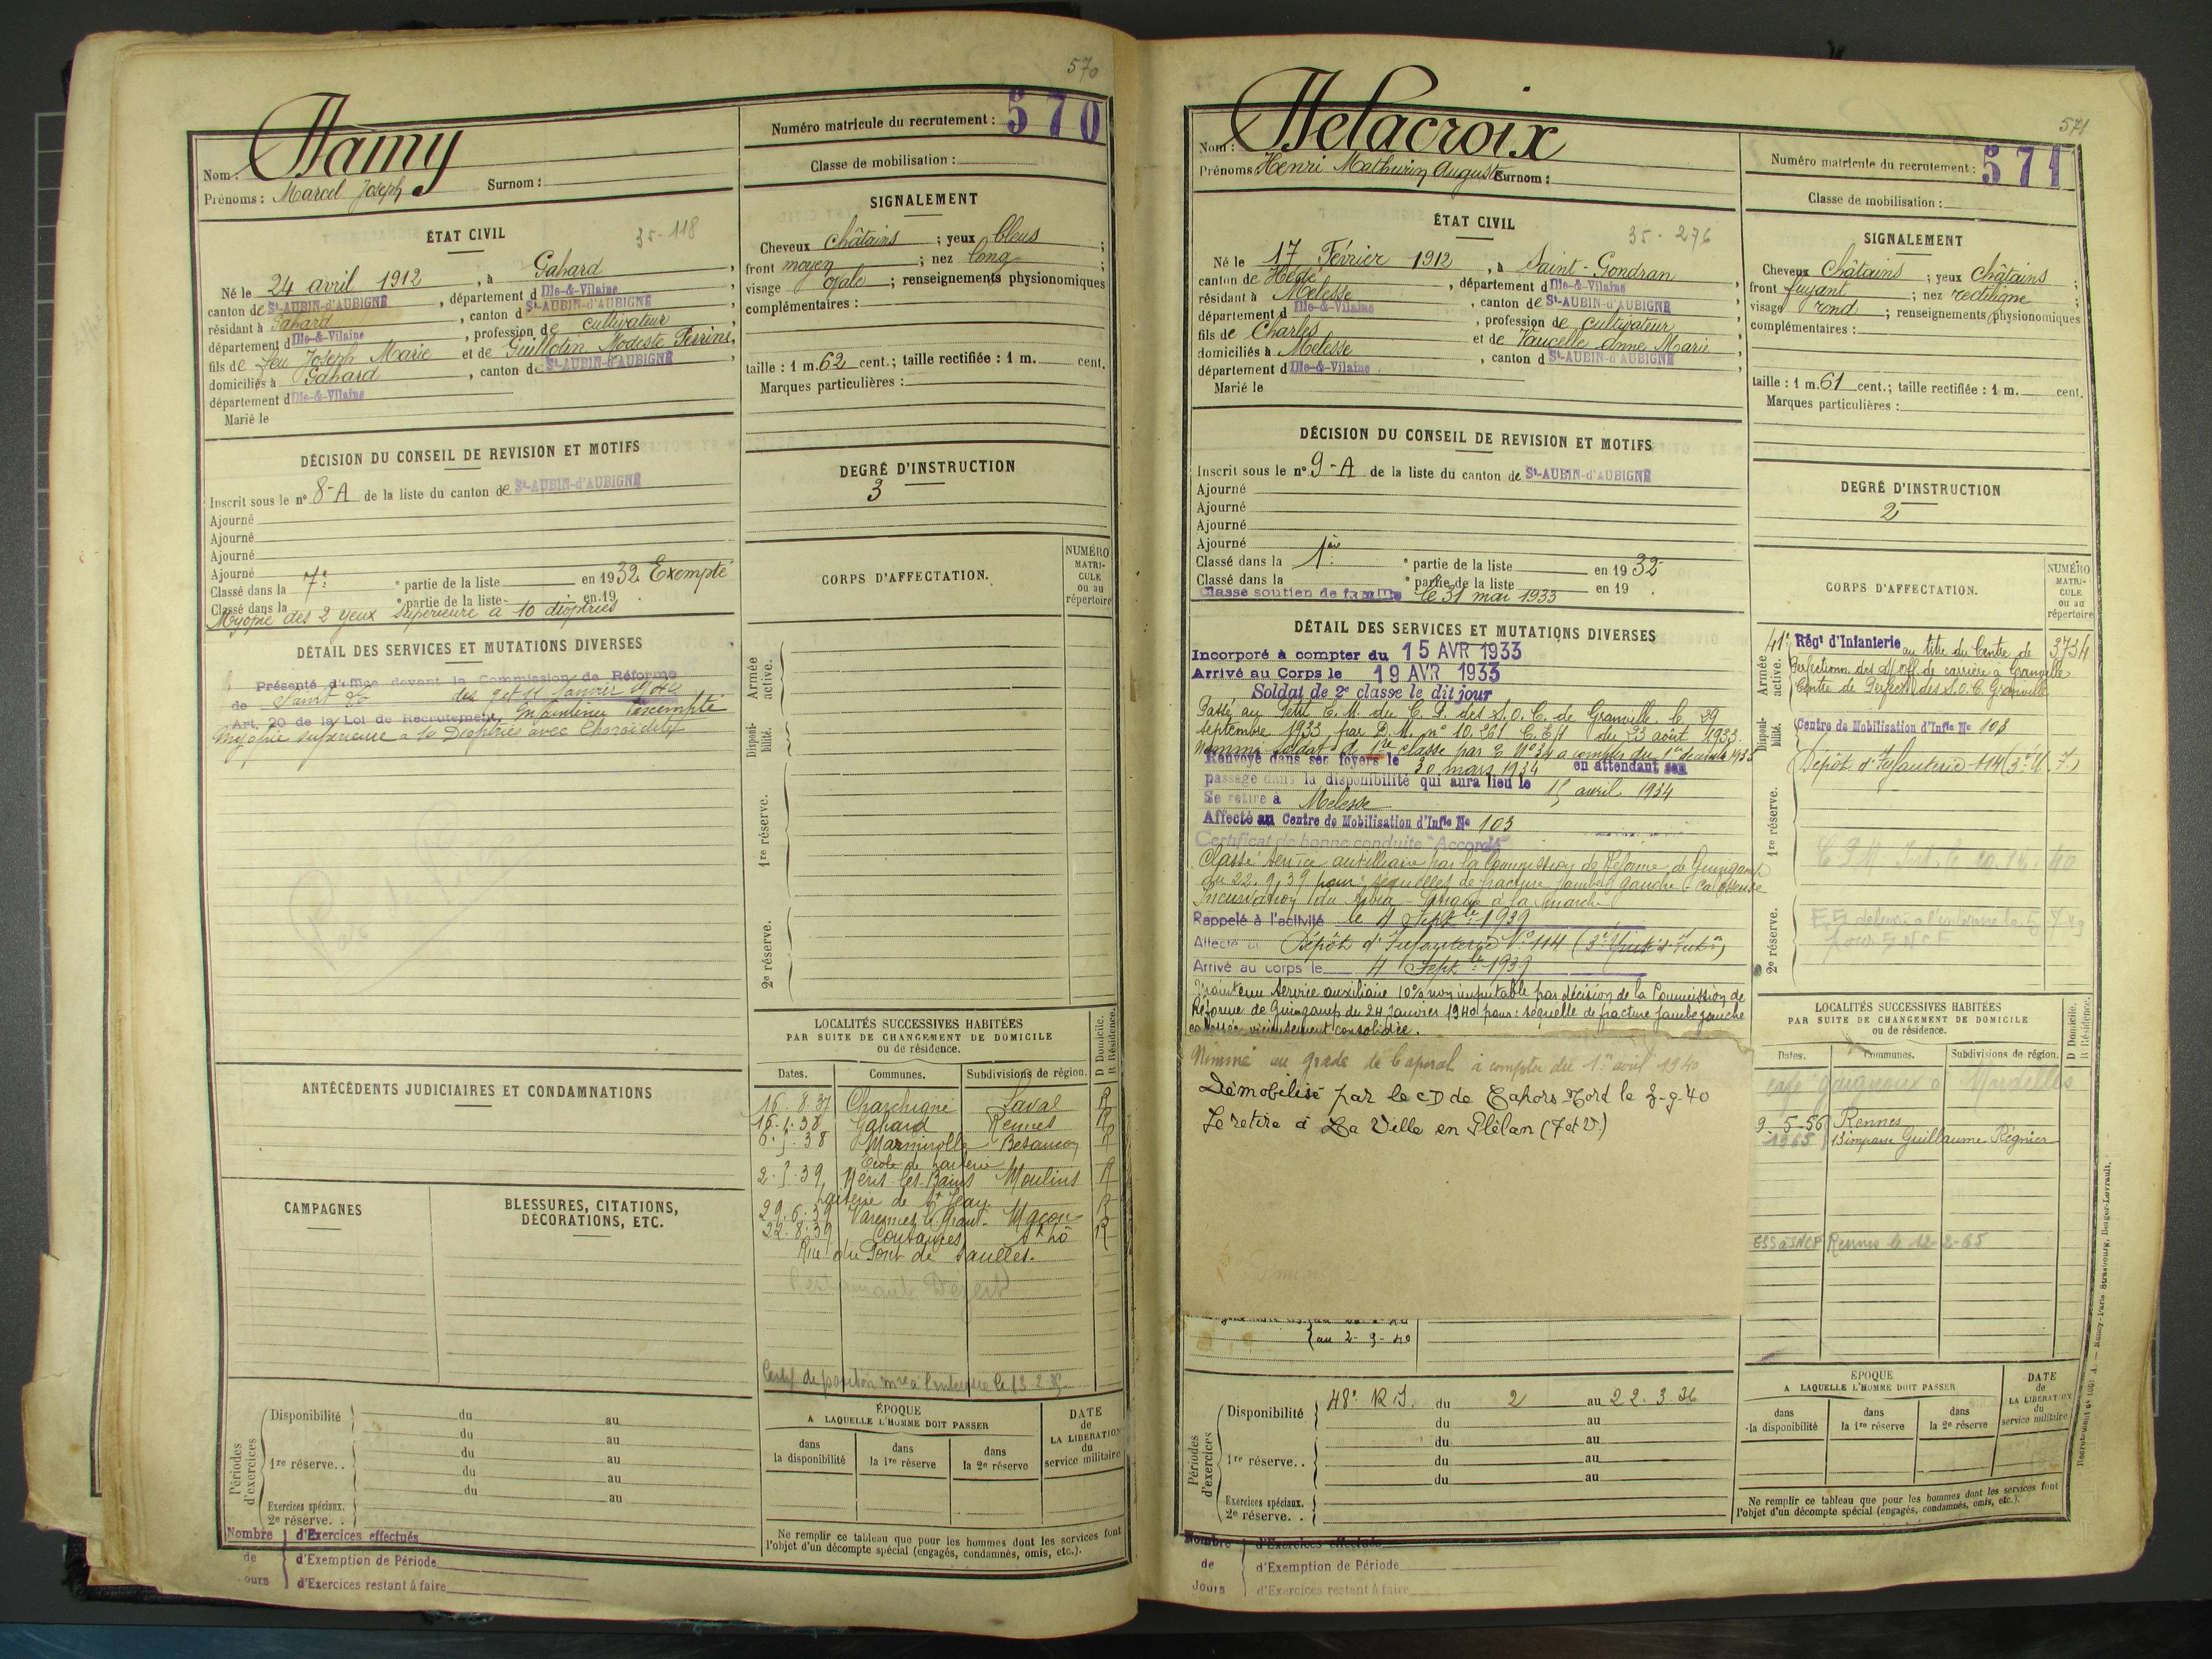 570
Numéro matricule du recrutement : 570
Nom : Hamy
Prénoms : Marcel Joseph Surnom :
Classe de mobilisation :
ÉTAT CIVIL
35-118
Né le 24 avril 1912, à Gahard,
canton de St-AUBIN-d'AUBIGNÉ, département d Ille-&-Vilaine,
résidant à Gahard, canton d St-AUBIN-d'AUBIGNÉ,
département d Ille-&-Vilaine, profession de cultivateur,
fils de feu Joseph Marie et de Guillotin Modeste Perrine,
domiciliés à Gahard, canton de St-AUBIN-d'AUBIGNÉ,
département d Ille-&-Vilaine
Marié le
SIGNALEMENT
Cheveux châtains ; yeux bleus ;
front moyen ; nez long ;
visage ovale ; renseignements physionomiques
complémentaires :
taille : 1 m. 62 cent.; taille rectifiée : 1 m. cent.
Marques particulières :
DÉCISION DU CONSEIL DE REVISION ET MOTIFS
Inscrit sous le n° 8-A de la liste du canton de St-AUBIN-d'AUBIGNÉ
Ajourné
Ajourné
Ajourné
Ajourné
Classé dans la 7e ° partie de la liste en 1932 Exempté
Classé dans la ° partie de la liste en 19 .
Myopie des 2 yeux supérieure à 10 dioptries
DEGRÉ D'INSTRUCTION
3
CORPS D'AFFECTATION.
NUMÉRO
MATRI-
CULE
ou au
répertoire
DÉTAIL DES SERVICES ET MUTATIONS DIVERSES
Présenté d'office devant la Commission de Réforme
de des 9 et 11 Janvier
Art. 20 de la Loi de Recrutement Maintenu exempté
myopie supérieure à 10 Dioptries avec Choroidite
Armée
active.
Disponi-
bilité.
1re réserve.
2e réserve.
ANTÉCÉDENTS JUDICIAIRES ET CONDAMNATIONS
CAMPAGNES
BLESSURES, CITATIONS,
DÉCORATIONS, ETC.
LOCALITÉS SUCCESSIVES HABITÉES
PAR SUITE DE CHANGEMENT DE DOMICILE
ou de résidence.
D Domicile.
R Résidence.
Dates. Communes. Subdivisions de région.
16.8.37 Charchigné Laval R
16.1.38 Gahard Rennes R
6.5.38 Mamirolle Besançon R
Ecole de laiterie
2.5.39 Néris-les-Bains Moulins R
Laiterie de St Jean
29.6.39 Varennes le Grand Macon R
22.8.39 Coutances St Lô R
Rue du Pont de Saulles.
Certif de position mre à l'intéressé le 13-2-
Périodes
d'exercices
Disponibilité du au
du au
1re réserve.. du au
du au
du au
Exercices spéciaux.
2e réserve. .
Nombre d'Exercices effectués
de d'Exemption de Période
ours d'Exercices restant à faire
ÉPOQUE
A LAQUELLE L'HOMME DOIT PASSER
DATE
de
LA LIBÉRATION
du
service militaire
dans
la disponibilité
dans
la 1re réserve
dans
la 2e réserve
Ne remplir ce tableau que pour les hommes dont les services font
l'objet d'un décompte spécial (engagés, condamnés, omis, etc.).
571
Numéro matricule du recrutement : 571
Nom : Delacroix
Prénoms : Henri Mathurin Auguste Surnom :
Classe de mobilisation :
ÉTAT CIVIL
35-276
Né le 17 Février 1912, à Saint-Gondran
canton de Hédé, département d Ille-&-Vilaine,
résidant à Melesse, canton de St-AUBIN-d'AUBIGNÉ
département d Ille-&-Vilaine, profession de cultivateur,
fils de Charles et de Vaucelle Anne Marie,
domiciliés à Melesse, canton d St-AUBIN-d'AUBIGNÉ,
département d Ille-&-Vilaine
Marié le
SIGNALEMENT
Cheveux châtains ; yeux châtains ;
front fuyant ; nez rectiligne ;
visage rond ; renseignements physionomiques
complémentaires :
taille : 1 m. 61 cent.; taille rectifiée : 1 m. cent.
Marques particulières :
DÉCISION DU CONSEIL DE REVISION ET MOTIFS
Inscrit sous le n° 9-A de la liste du canton de St-AUBIN-d'AUBIGNÉ
Ajourné
Ajourné
Ajourné
Ajourné
Classé dans la 1ère ° partie de la liste en 1932
Classé dans la ° partie de la liste en 19 .
Classé soutien de famille le 31 mai 1933
DEGRÉ D'INSTRUCTION
2
CORPS D'AFFECTATION.
NUMÉRO
MATRI-
CULE
ou au
répertoire
DÉTAIL DES SERVICES ET MUTATIONS DIVERSES
Incorporé à compter du 15 AVR 1933
Arrivé au Corps le 19 AVR 1933
Soldat de 2e classe le dit jour
Passé au Petit E.M. du C.P. des S.O.C. de Granville le 29
septembre 1933 par D.M. n° 10.261 C.E/1 du 23 août 1933.
Nommé soldat de 1re classe par
Renvoyé dans ses foyers le 30 mars 1934 en attendant son
passage dans la disponibilité qui aura lieu le 15 avril 1934
Se retire à Melesse
Affecté au Centre de Mobilisation d'Infie No 103
Certificat de bonne conduite "Accordé"
Classé service auxiliaire par la Commission de Réforme de Guingamp
du 22.9.39 pour : séquelles de fracture jambe gauche
Rappelé à l'activité le 4 Septbre 1939
Affecté au Dépôt d'Infanterie No 114
Arrivé au corps le 4 Septbre 1939
Maintenu Service auxiliaire 10% non imputable par décision de la Commission de
Réforme de Guingamp du 24 Janvier 1940 pour : séquelle de fracture jambe gauche
vicieusement consolidée.
Nommé au grade de Caporal à compter du 1er avril 1940
Démobilisé par le CD de Cahors-Nord le 3-9-40
Se retire à La Ville en Plélan (I et V)
au 2-9-40
Armée
active.
41e Régt d'Infanterie au titre du Centre de 3734
Perfectionn. des S/Off. de carrière à Granville
Centre de Perfect. des S.O.C. Granville
Disponi-
bilité.
Centre de Mobilisation d'Infie No 103
Dépôt d'Infanterie 114
1re réserve.
2e réserve.
LOCALITÉS SUCCESSIVES HABITÉES
PAR SUITE DE CHANGEMENT DE DOMICILE
ou de résidence.
D Domicile.
R Résidence.
Dates. Communes. Subdivisions de région.
9-5-56 Rennes
1965 13 impasse Guillaume Régnier
ESS à SNCF Rennes le 12-2-65
Périodes
d'exercices
Disponibilité 48e R.I. du 2 au 22.3.36
du au
du au
1re réserve.. du au
du au
Exercices spéciaux.
2e réserve. .
Nombre d'Exercices effectués
de d'Exemption de Période
Jours d'Exercices restant à faire
ÉPOQUE
A LAQUELLE L'HOMME DOIT PASSER
DATE
de
LA LIBÉRATION
du
service militaire
dans
la disponibilité
dans
la 1re réserve
dans
la 2e réserve
Ne remplir ce tableau que pour les hommes dont les services font
l'objet d'un décompte spécial (engagés, condamnés, omis, etc.).